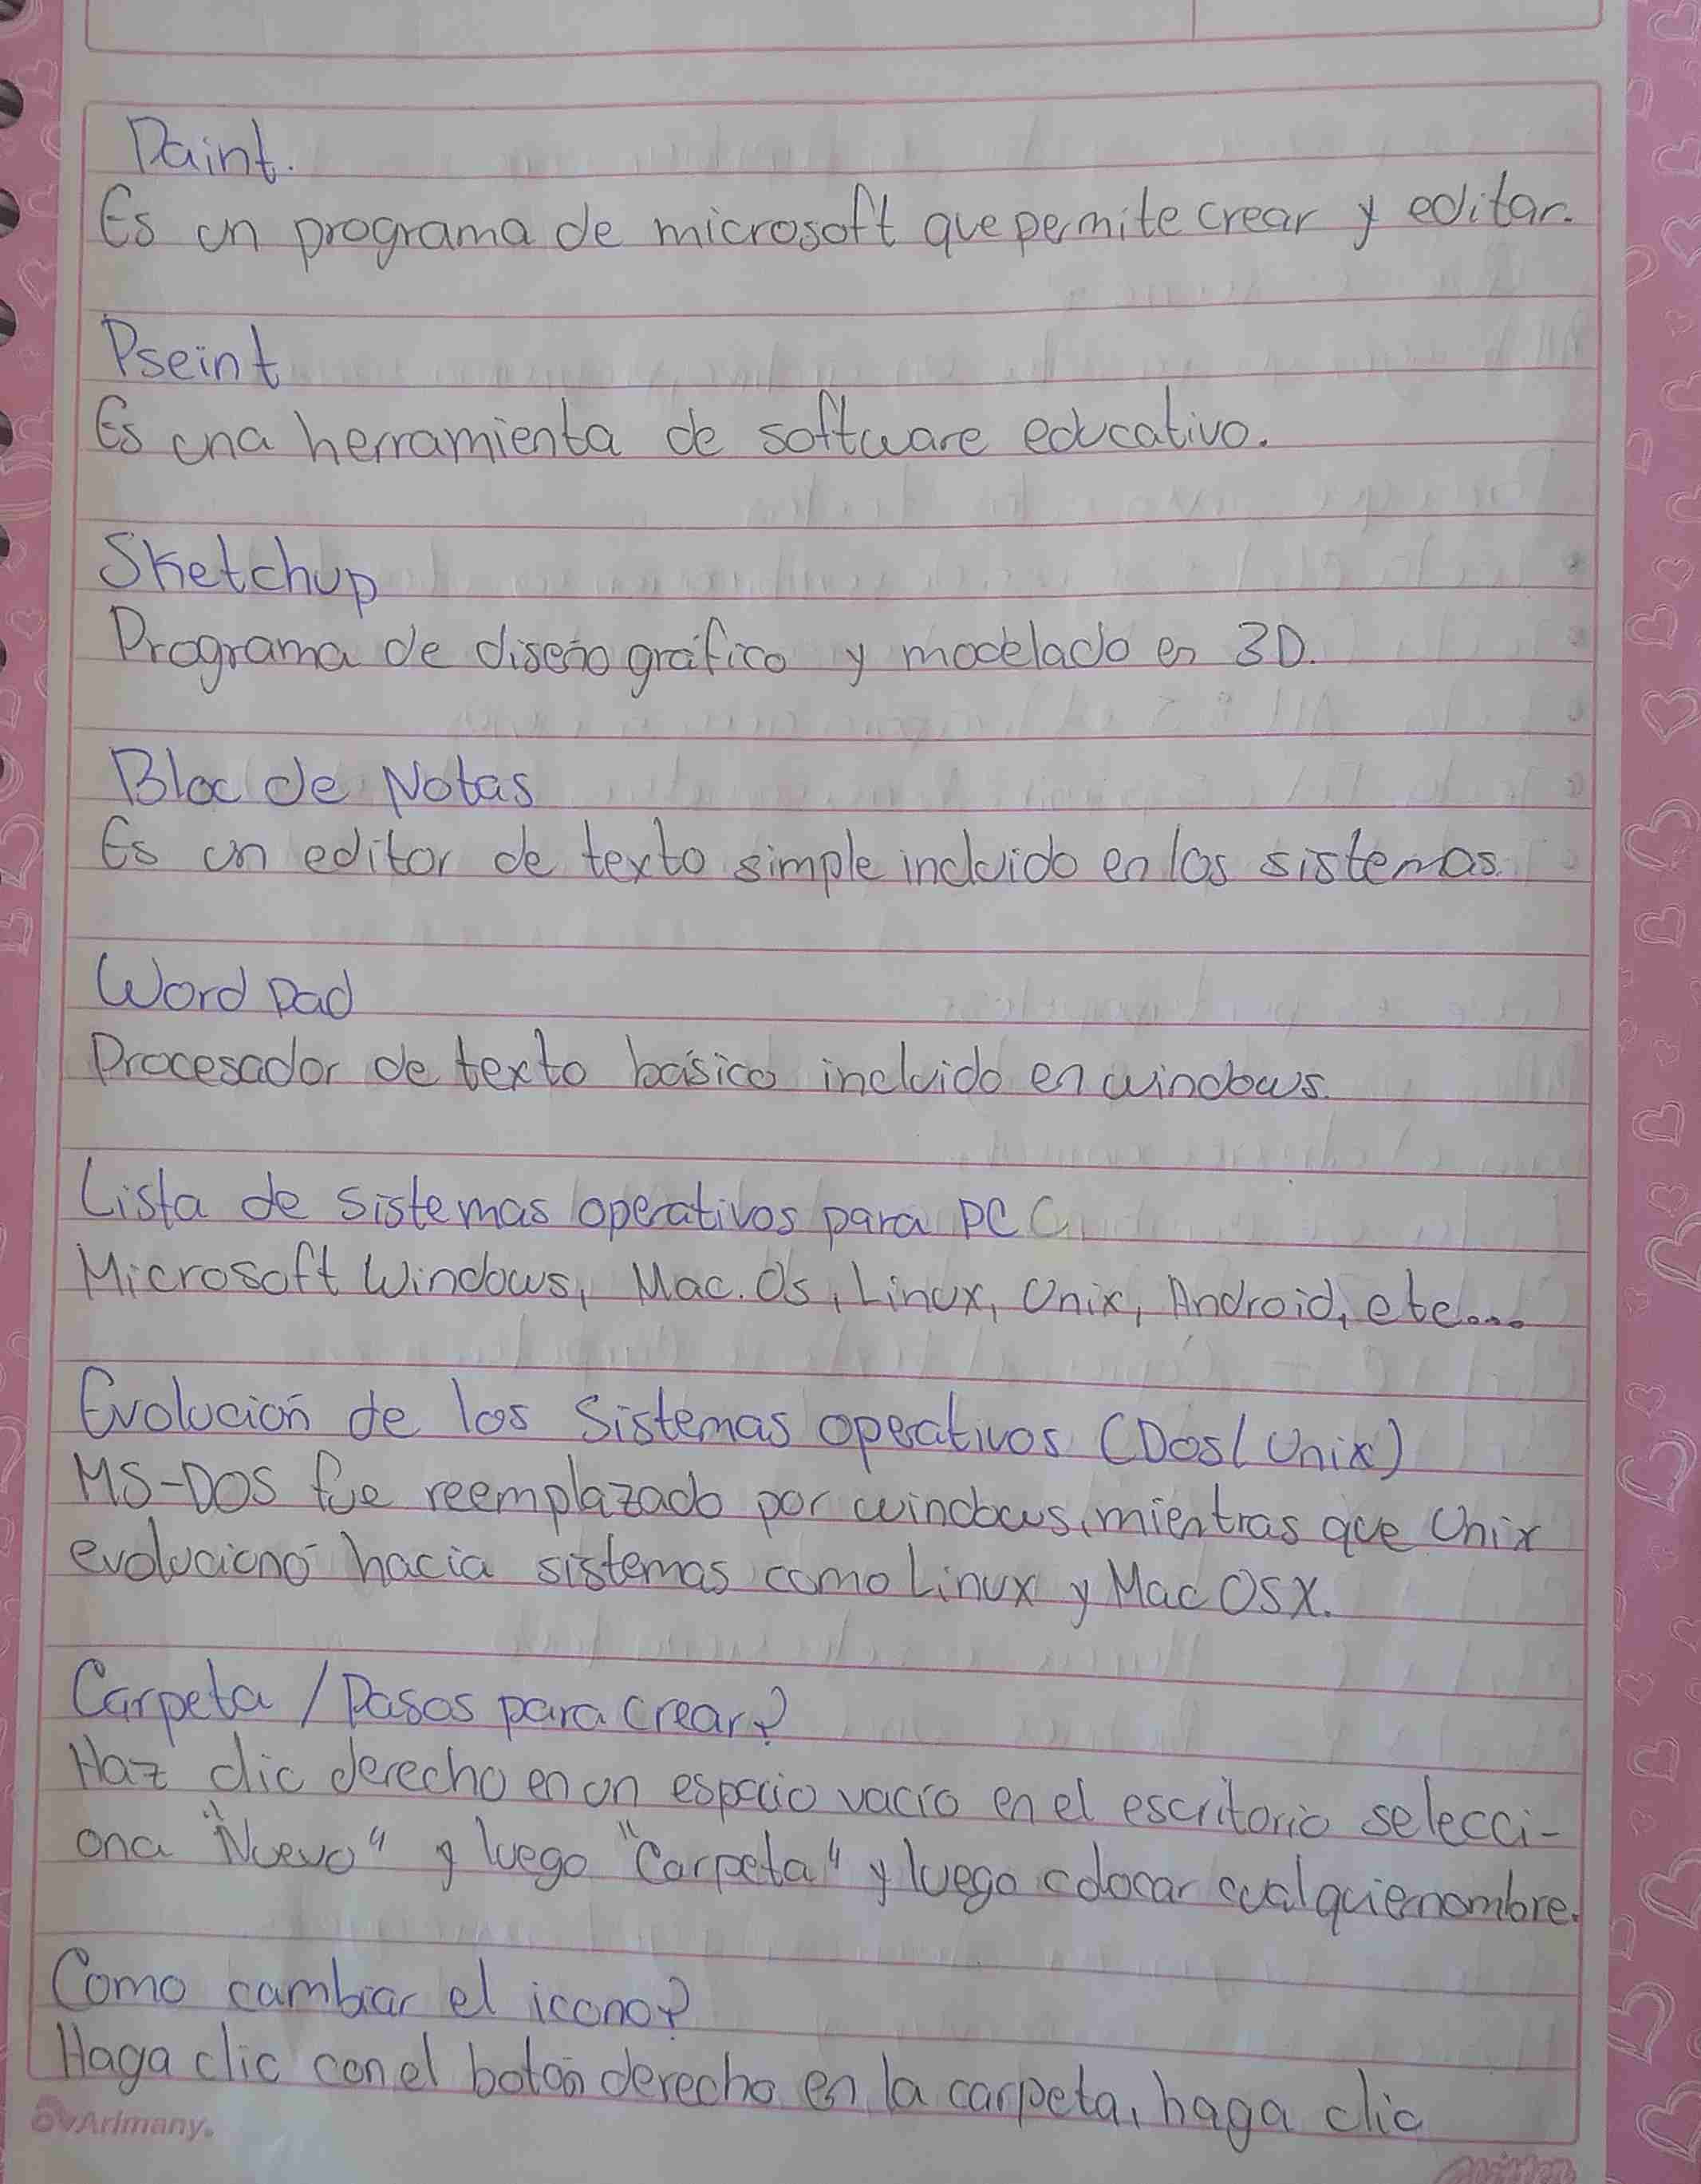 Paint.
Es un programa de microsoft que permite crear y editar.
Pseint
Es una herramienta de software educativo.
Sketchup
Programa de diseño gráfico y modelado en 3D.
Bloc de Notas
Es un editor de texto simple incluido en los sistemas.
Word Pad
Procesador de texto básico incluido en windows.
Lista de sistemas operativos para PC
Microsoft Windows, Mac.Os, Linux, Unix, Android, etc...
Evolución de los Sistemas operativos (Dos/Unix)
MS-DOS fue reemplazado por windows, mientras que Unix
evolucionó hacia sistemas como Linux y Mac OSX.
Carpeta / Pasos para crear?
Haz clic derecho en un espacio vacío en el escritorio selecci-
ona "Nuevo" y luego "Carpeta" y luego colocar cualquier nombre.
Como cambiar el icono?
Haga clic con el botón derecho en la carpeta, haga clic
Arimany.